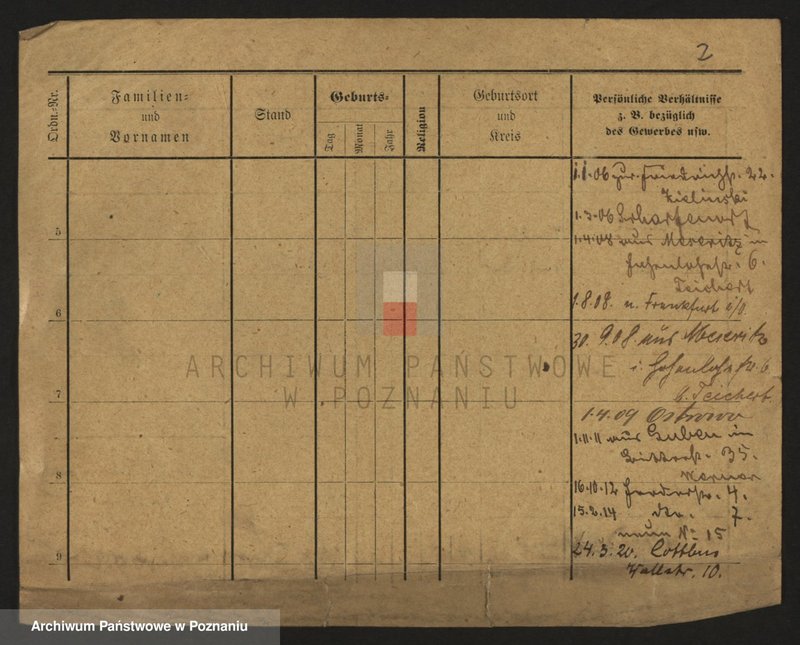 2
Ordn.-Nr.
Familien-
und
Vornamen
Stand
Geburts-
Tag
Monat
Jahr
Religion
Geburtsort
und
Kreis
Persönliche Verhältnisse
z. B. bezüglich
des Gewerbes usw.
1.1.06 zur Friedrichstr. 22.
Zielinski
1.3.06 Scharfenort
5
1.4.08 aus Meseritz in
Hohenlohestr. 6.
Teichert
1.8.08. n. Frankfurt i/O.
6
30. 9.08. aus Meseritz
i. Hohenlohestr. 6
b. Teichert
7
1.4.09 Ostrowo
1.11.11 aus Guben in
35.
Werner
8
16.10.12 4.
15.2.14 dto. 7.
neun No 15
24.3.20. Cottbus
9
Wallstr. 10.
ARCHIWUM PAŃSTWOWE
W POZNANIU
Archiwum Państwowe w Poznaniu